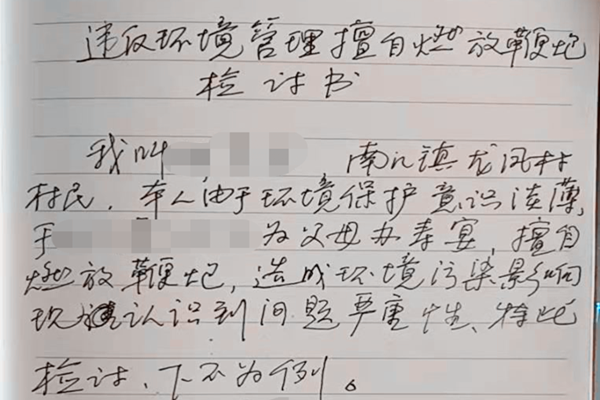 违反环境管理擅自燃放鞭炮
检讨书
我叫 南江镇龙凤村
村民，本人由于环境保护意识淡薄，
于 为父母办寿宴，擅自
燃放鞭炮，造成环境污染影响
现 认识到问题严重性、特此
检讨、下不为例。